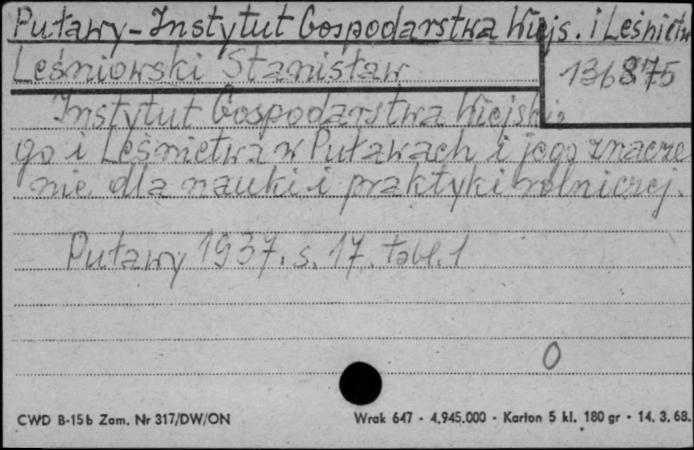 Puławy-Instytut Gospodarstwa Wiejs. i Leśnictw
Leśniowski Stanisław
136875
Instytut Gospodarstwa Wiejskie
go i Leśnictwa w Puławach i jego znacze
nie dla nauki i praktyki rolniczej.
Puławy 1937. s. 17. tabl. 1
0
CWD B-15b Zam. Nr 317/DW/ON
Wrak 647 - 4.945.000 - Karton 5 kl. 180 gr - 14. 3. 68.